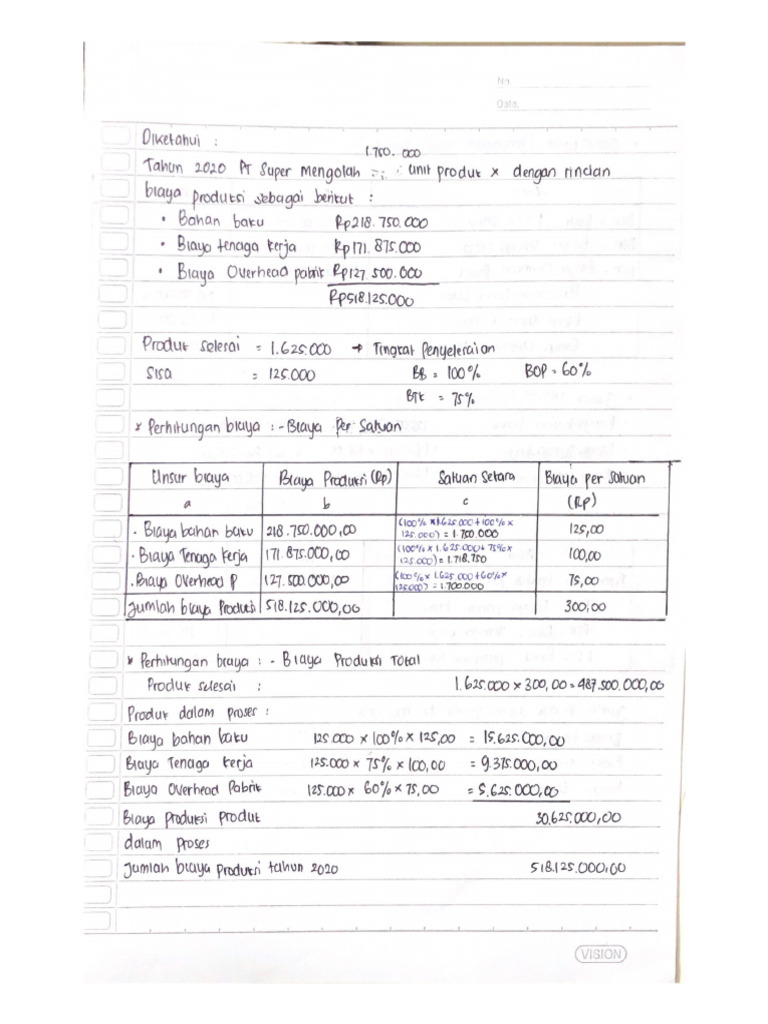 No.
Date.
Diketahui :
1.750.000
Tahun 2020 PT Super Mengolah unit produk x dengan rincian
biaya produksi sebagai berikut :
• Bahan baku Rp218.750.000
• Biaya tenaga kerja Rp171.875.000
• Biaya Overhead pabrik Rp127.500.000
Rp518.125.000
Produk selesai = 1.625.000 → Tingkat Penyelesaian
Sisa = 125.000 BB = 100% BOP = 60%
BTK = 75%
* Perhitungan biaya : - Biaya Per Satuan
Unsur biaya Biaya Produksi (Rp) Satuan Setara Biaya per Satuan
a b c (Rp)
• Biaya bahan baku 218.750.000,00 (100% x 1.625.000 + 100% x 125.000) = 1.750.000 125,00
• Biaya Tenaga Kerja 171.875.000,00 (100% x 1.625.000 + 75% x 125.000) = 1.718.750 100,00
• Biaya Overhead P 127.500.000,00 (100% x 1.625.000 + 60% x 125.000) = 1.700.000 75,00
Jumlah biaya Produksi 518.125.000,00 300,00
* Perhitungan biaya : - Biaya Produksi Total
Produk selesai : 1.625.000 x 300,00 = 487.500.000,00
Produk dalam proses :
Biaya bahan baku 125.000 x 100% x 125,00 = 15.625.000,00
Biaya Tenaga kerja 125.000 x 75% x 100,00 = 9.375.000,00
Biaya Overhead Pabrik 125.000 x 60% x 75,00 = 5.625.000,00
Biaya produksi produk 30.625.000,00
dalam proses
Jumlah biaya produksi tahun 2020 518.125.000,00
VISION